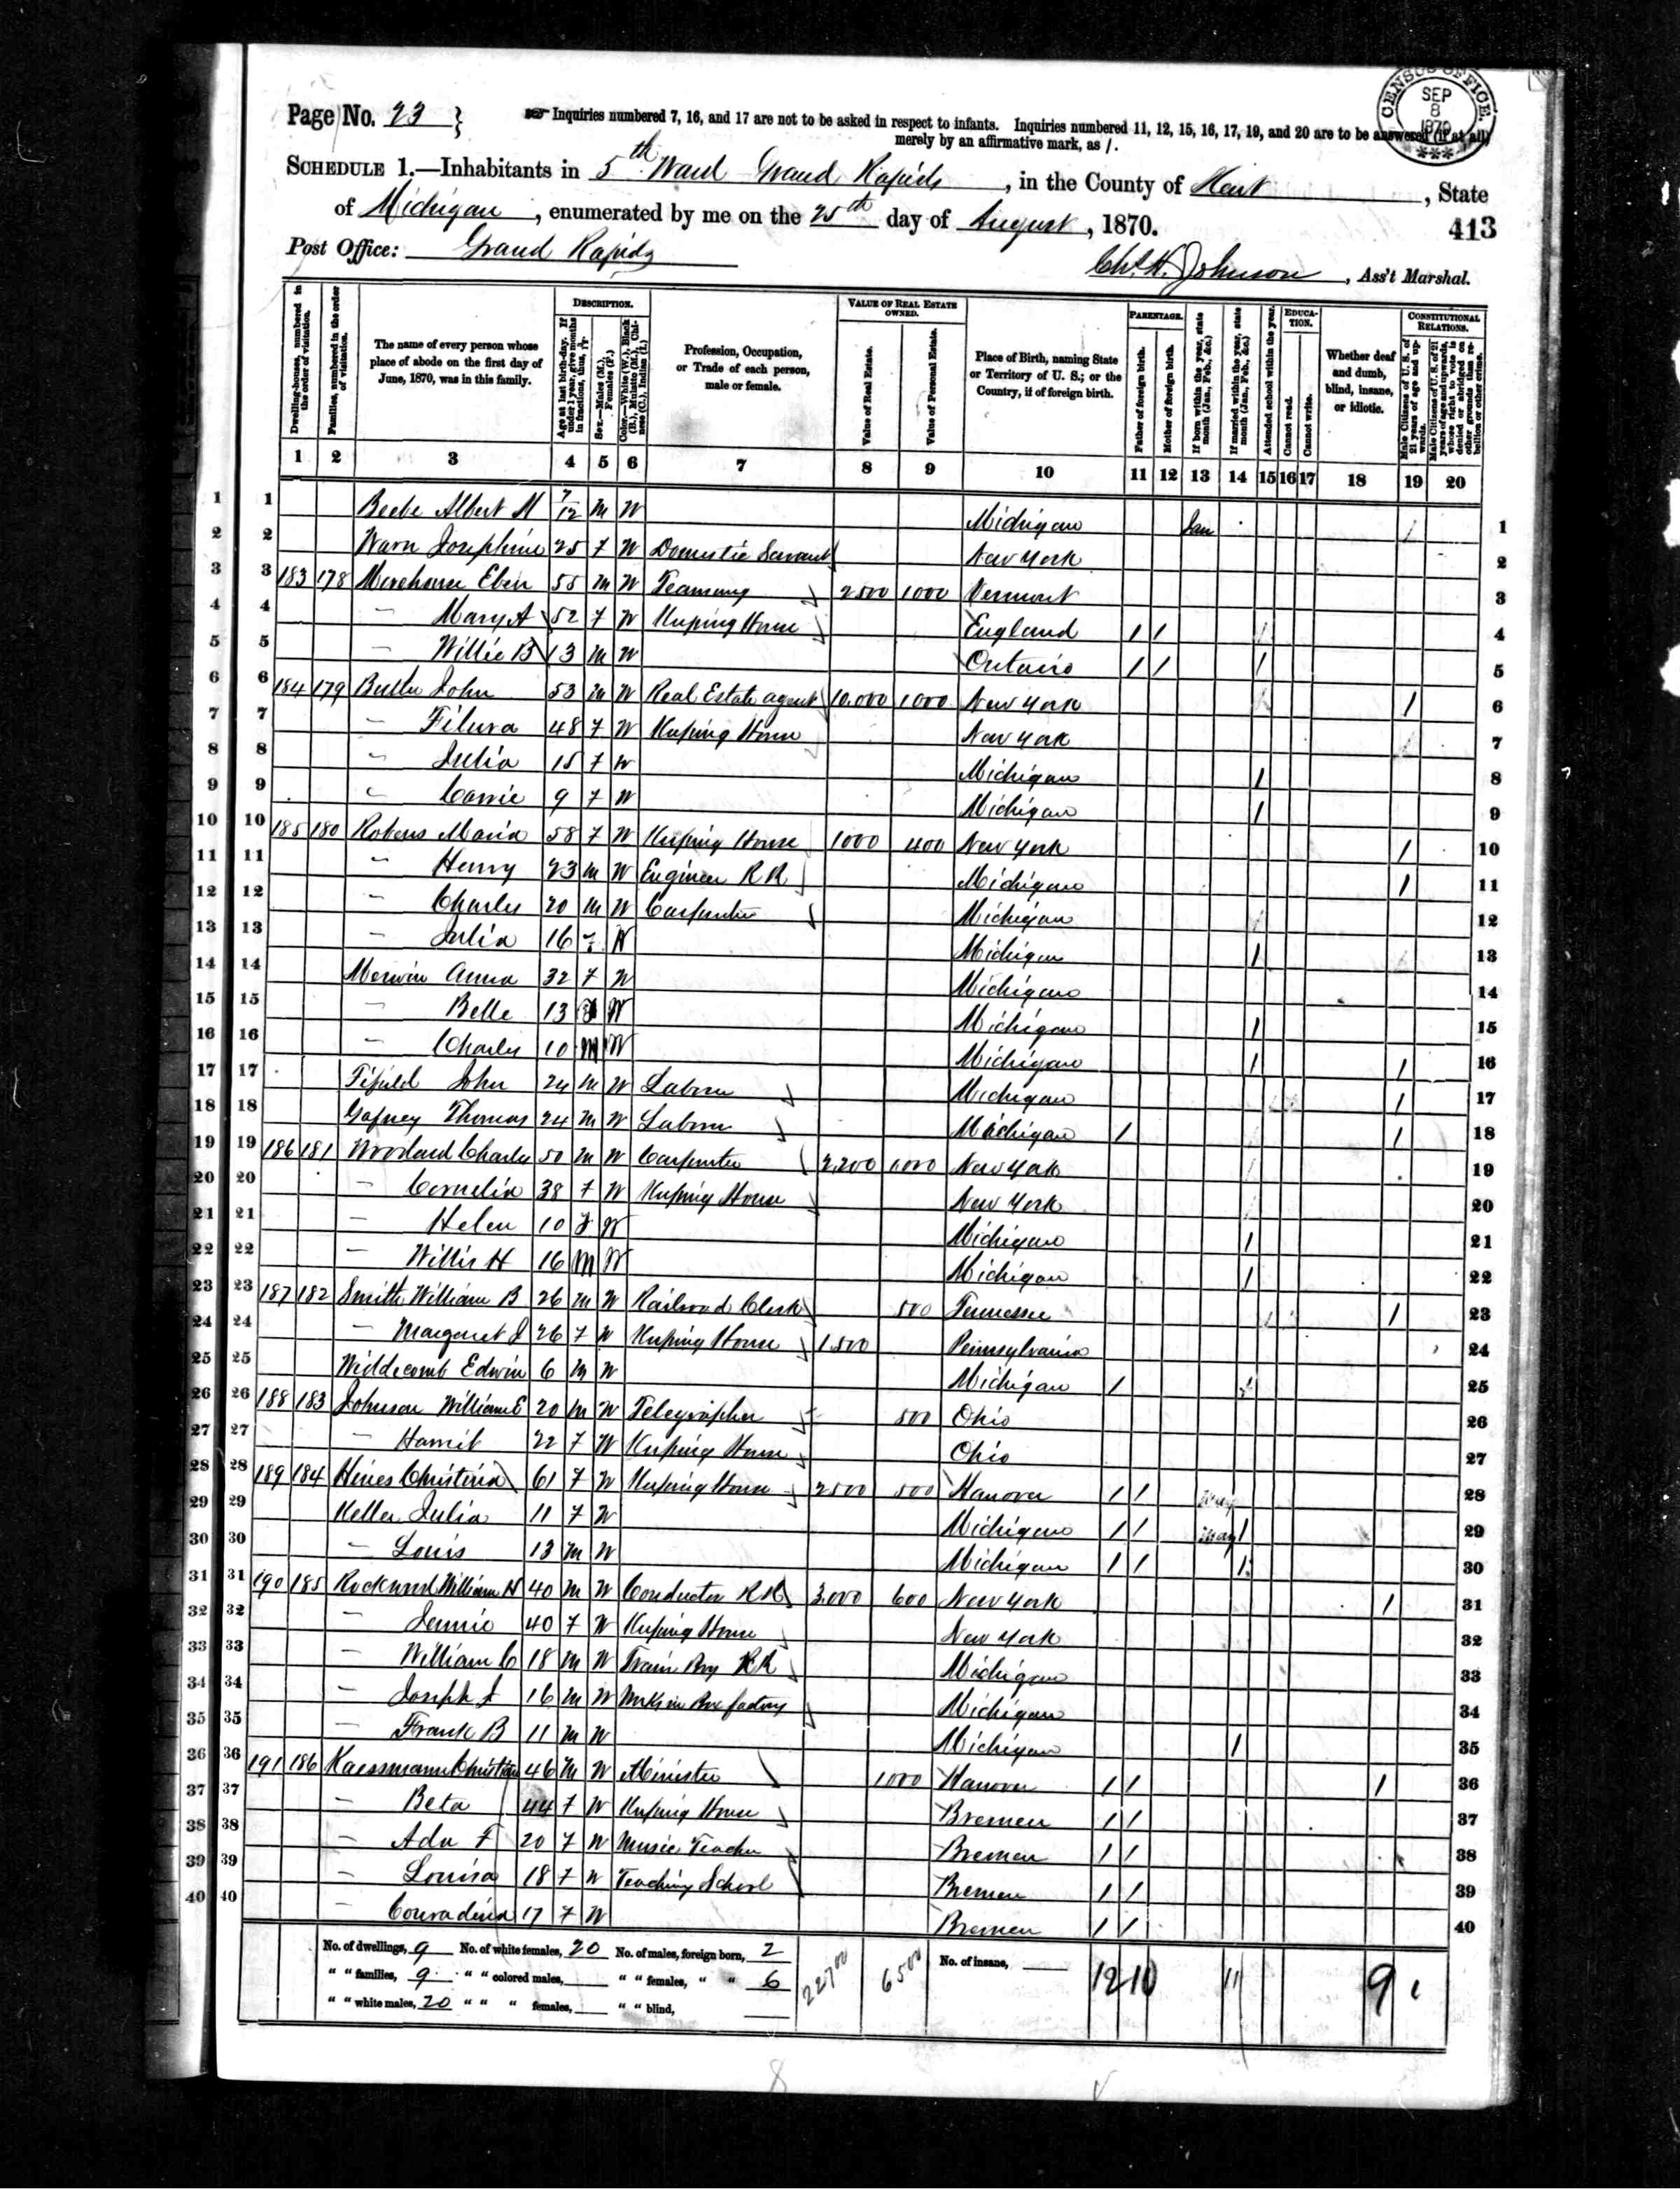 CENSUS OFFICE. SEP 8 1870 ***
Page No. 23 } Inquiries numbered 7, 16, and 17 are not to be asked in respect to infants. Inquiries numbered 11, 12, 15, 16, 17, 19, and 20 are to be answered (if at all)
merely by an affirmative mark, as /.
SCHEDULE 1.—Inhabitants in 5th Ward Grand Rapids, in the County of Kent, State
of Michigan, enumerated by me on the 25th day of August, 1870.
413
Post Office: Grand Rapids
Chs. H. Johnson, Ass't Marshal.
Dwelling-houses, numbered in the order of visitation.
Families, numbered in the order of visitation.
The name of every person whose place of abode on the first day of June, 1870, was in this family.
DESCRIPTION.
Age at last birth-day. If under 1 year, give months in fractions, thus,
Sex.—Males (M.), Females (F.)
Color.—White (W.), Black (B.), Mulatto (M.), Chinese (C.), Indian (I.)
Profession, Occupation, or Trade of each person, male or female.
VALUE OF REAL ESTATE OWNED.
Value of Real Estate.
Value of Personal Estate.
Place of Birth, naming State or Territory of U. S.; or the Country, if of foreign birth.
PARENTAGE.
Father of foreign birth.
Mother of foreign birth.
If born within the year, state month (Jan., Feb., &c.)
If married within the year, state month (Jan., Feb., &c.)
Attended school within the year.
EDUCATION.
Cannot read.
Cannot write.
Whether deaf and dumb, blind, insane, or idiotic.
CONSTITUTIONAL RELATIONS.
Male Citizens of U. S. of 21 years of age and upwards.
Male Citizens of U. S. of 21 years of age and upwards, whose right to vote is denied or abridged on other grounds than rebellion or other crime.
1 2 3 4 5 6 7 8 9 10 11 12 13 14 15 16 17 18 19 20
1 1 Beebe Albert M 7/12 M W Michigan Jan 1
2 2 Warn Josephine 25 F W Domestic Servant New York 2
3 3 183 178 Morehouse Eben 55 M W Teaming 2500 1000 Vermont 3
4 4 — Mary A 52 F W Keeping House England / / 4
5 5 — Willie B 13 M W Ontario / / / 5
6 6 184 179 Butler John 53 M W Real Estate agent 10,000 1000 New York / 6
7 7 — 48 F W Keeping House New York 7
8 8 — Julia 15 F W Michigan / 8
9 9 — Carrie 9 F W Michigan / 9
10 10 185 180 Maria 58 F W Keeping House 1000 400 New York / 10
11 11 — Henry 23 M W Engineer R R Michigan / 11
12 12 — Charles 20 M W Carpenter Michigan 12
13 13 — Julia 16 F W Michigan / 13
14 14 Merwin Anna 32 F W Michigan 14
15 15 — Belle 13 F W Michigan / 15
16 16 — Charles 10 M W Michigan / / 16
17 17 Fifield John 24 M W Laborer Michigan / 17
18 18 Gafney Thomas 24 M W Laborer Michigan / / 18
19 19 186 181 Woodard Charles 50 M W Carpenter 2,200 1000 New York 19
20 20 — Cornelia 38 F W Keeping House New York 20
21 21 — Helen 10 F W Michigan / 21
22 22 — Willis H 16 M W Michigan / 22
23 23 187 182 Smith William B 26 M W Railroad Clerk 500 Tennessee / 23
24 24 — Margaret J 26 F W Keeping House 1,500 Pennsylvania 24
25 25 Widdecomb Edwin 6 M W Michigan / 25
26 26 188 183 Johnson William E 20 M W Telegrapher 500 Ohio 26
27 27 — Harriet 22 F W Keeping House Ohio 27
28 28 189 184 Hines Christina 61 F W Keeping House 2500 500 Hanover / / 28
29 29 Keller Julia 11 F W Michigan / / May / 29
30 30 — Louis 13 M W Michigan / / / 30
31 31 190 185 Rockwood William H 40 M W Conductor R R 3,000 600 New York / 31
32 32 — Jennie 40 F W Keeping House New York 32
33 33 — William C 18 M W Train Boy R R Michigan 33
34 34 — Joseph J 16 M W Works in factory Michigan 34
35 35 — Frank B 11 M W Michigan / 35
36 36 191 186 Kaessmann Christian 46 M W Minister 1000 Hanover / / / 36
37 37 — Beta 44 F W Keeping House Bremen / / 37
38 38 — Ada F 20 F W Music Teacher Bremen / / 38
39 39 — Louisa 18 F W Teaching School Bremen / / 39
40 40 — Conradina 17 F W Bremen / / 40
No. of dwellings, 9 No. of white females, 20 No. of males, foreign born, 2 22700 6500 No. of insane, 12 10 11 9 1
" " families, 9 " " colored males, " " females, " " 6
" " white males, 20 " " " females, " " blind,